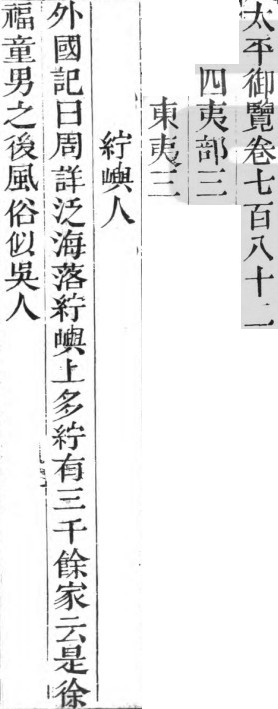 太平御覽卷七百八十二
四夷部三
東夷三
紵嶼人
外國記曰周詳泛海落紵嶼上多紵有三千餘家云是徐
福童男之後風俗似吳人